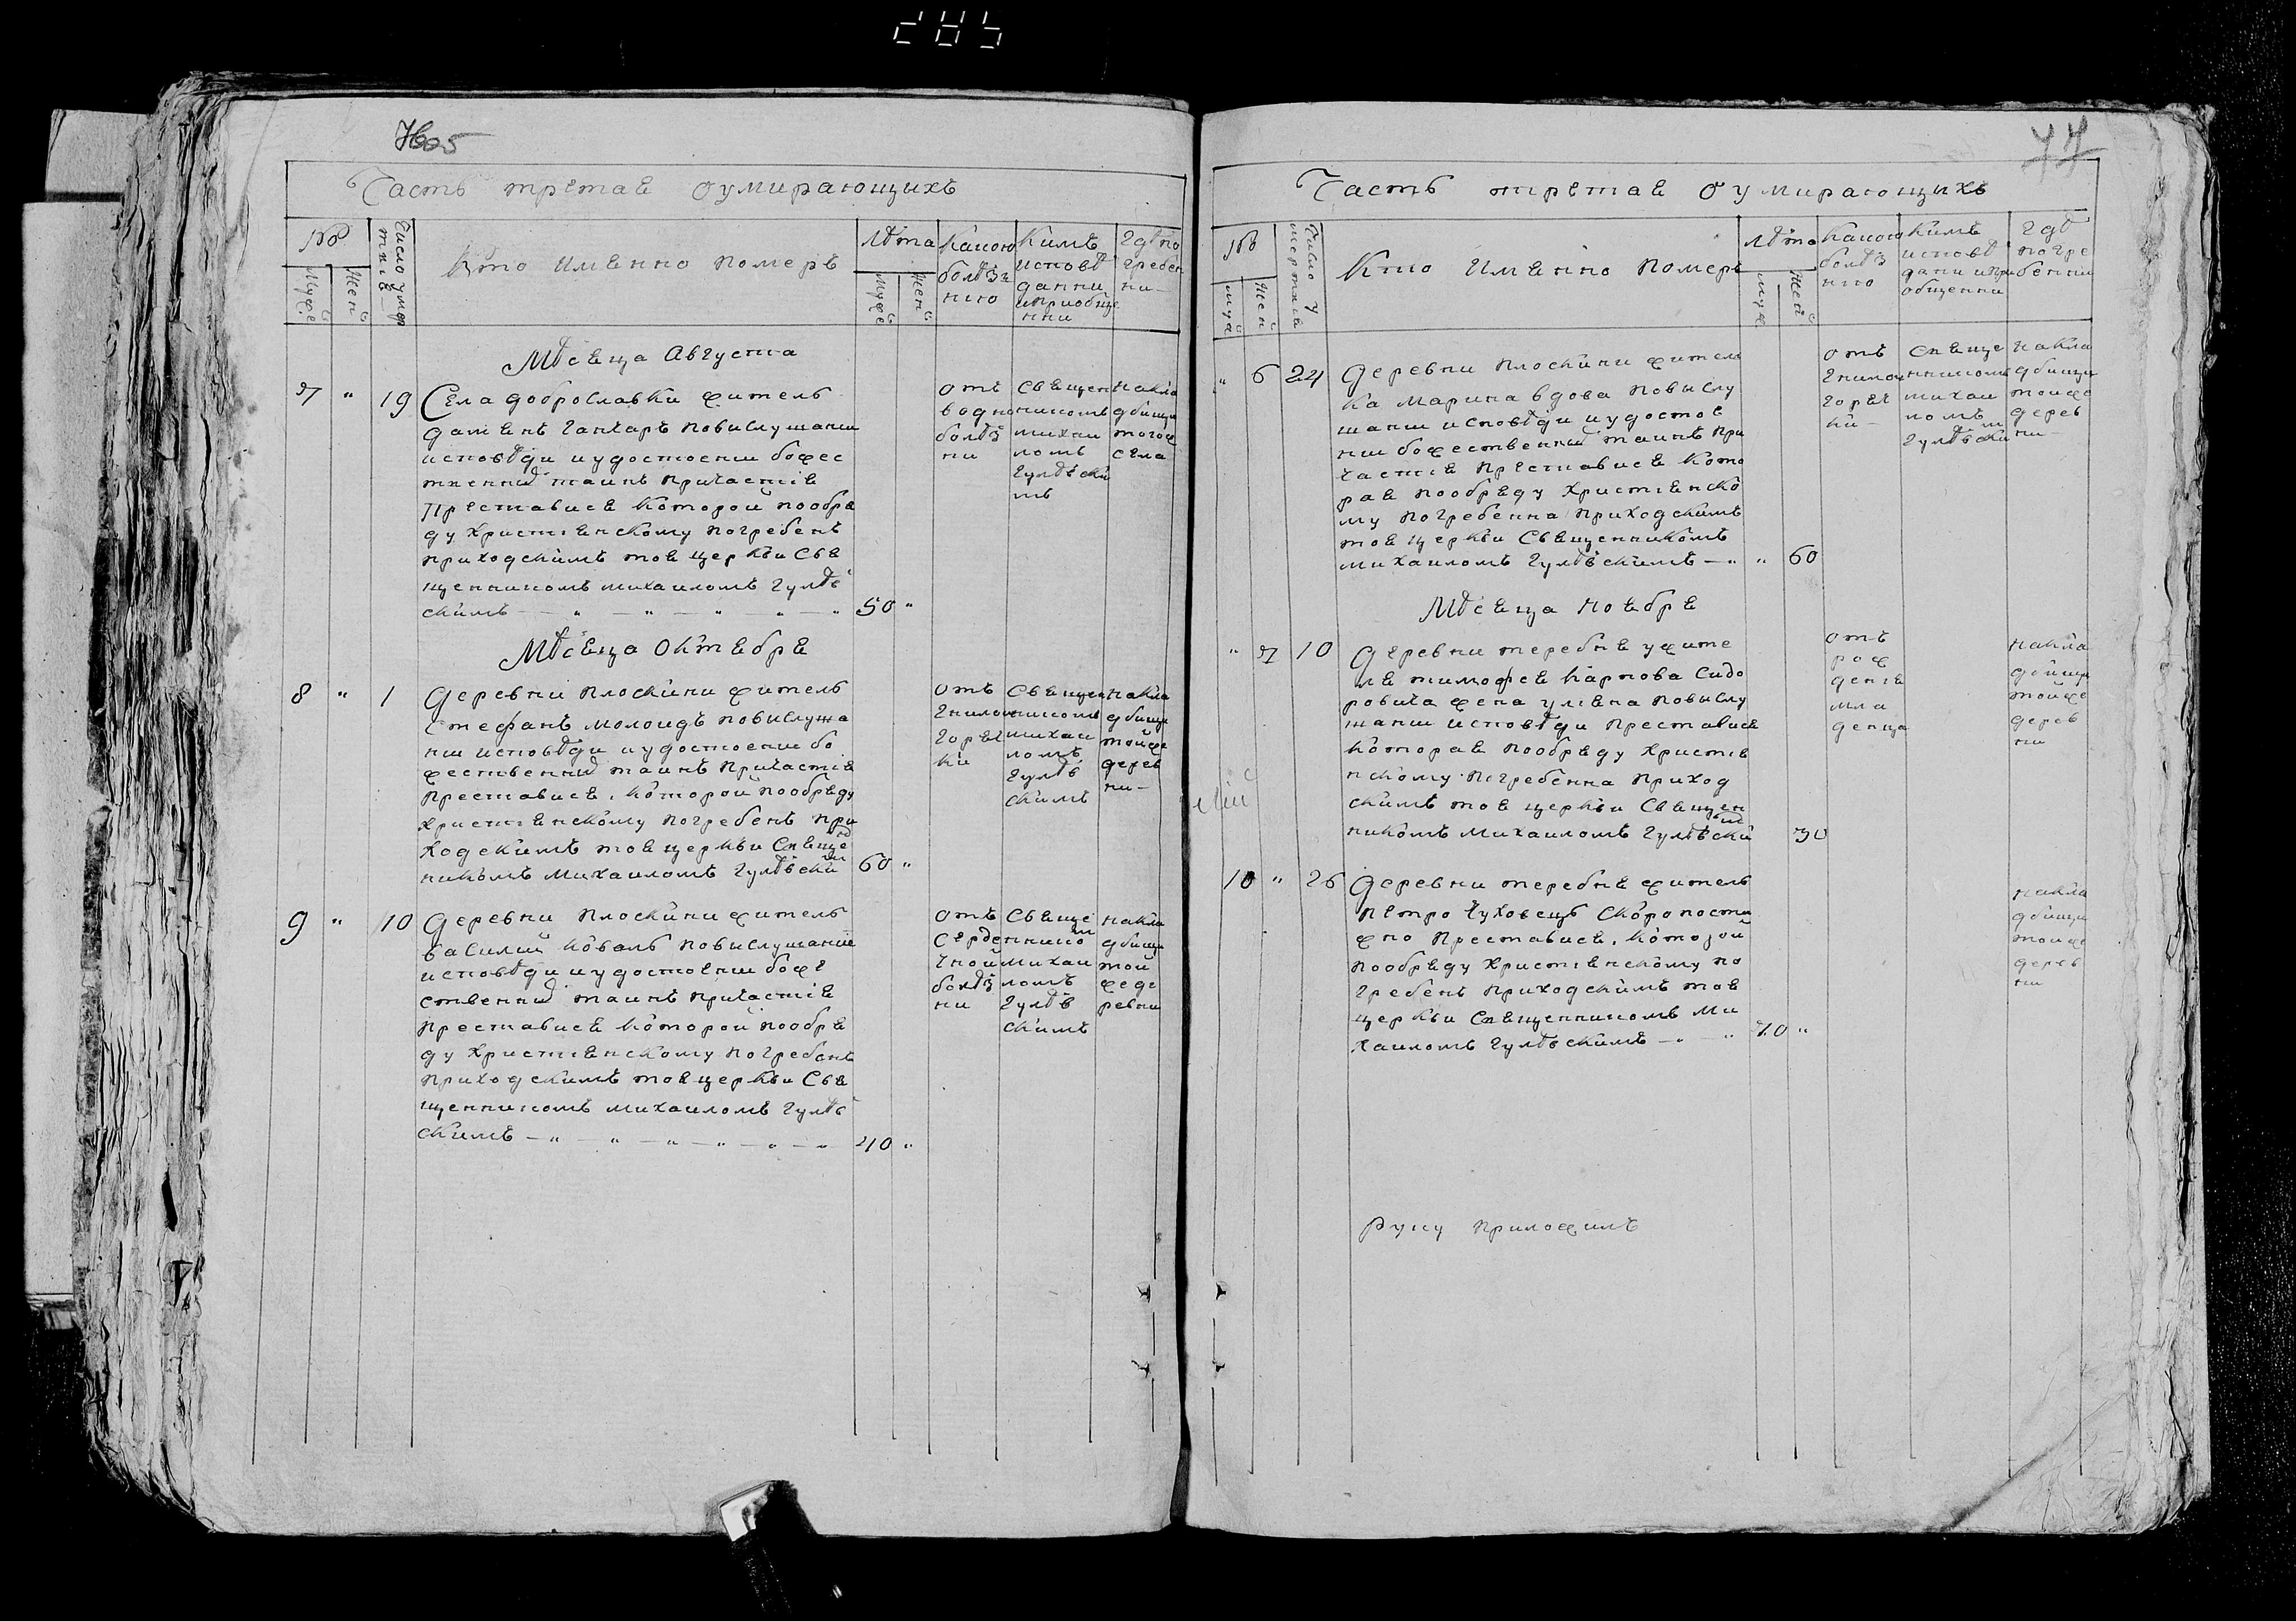 285
Часть третая оумирающихъ
№
Число умер
тиѣ
Кто Именно Померъ
Лѣта
Какою
болѣз
нію
Кимъ
исповѣ
данни
иприобще
нни
Гдѣ по
гребен
ни
Мѣсяца Августа
7 " 19 Села доброславки житель
от
Дамянъ Ганчаръ повислушании
исповѣди иудостоении божес
твенний таинъ причастія
Преставися которой пообря
ду християнскому погребенъ
приходскимъ тоя церкви Свя
щенникомъ михаиломъ Гулѣв
скимъ 50 "
отъ
водно
болѣз
ни
Священ
никомъ
михаи
ломъ
Гулѣвски
мъ
накла
дбищи
тогож
села
Мѣсяца октября
8 " 1 Деревни Плоскини житель
Стефанъ молоидъ повислуша
нии исповѣди иудостоении бо
жественний таинъ причастія
преставися, которой пообряду
християнскому погребенъ при
ходскимъ тоя церкви Свяще
никомъ Михаиломъ Гулѣвски 60 "
отъ
гнилои
горяч
ки
Священ
никомъ
михаи
ломъ
Гулѣв
скимъ
накла
дбищи
тойже
дерев
ни
9 " 10 Деревни Плоскини житель
василий коваль повислушании
исповѣди иудостоении боже
ственний таинъ причастія
преставися которой пообря
ду християнскому погребенъ
приходскимъ тоя церкви Свя
щенникомъ михаиломъ Гулѣв
скимъ 40 "
отъ
серде
чной
болѣз
ни
Свяще
ннико
михаи
ломъ
Гулѣв
скимъ
накла
дбищи
той
жеде
ревни
77
Часть третая оумирающихъ
№
Число у
мертиѣ
Кто Именно Померъ
Лѣта
Какою
болѣз
нію
Кимъ
исповѣ
дани ипри
общенни
Гдѣ
погре
бенни
" 6 24 Деревни Плоскини житель
ка Марина вдова повислу
шании исповѣди иудостоя
нии божественний таинъ при
частія преставися кото
рая пообряду християнско
му погребенна приходскимъ
тоя церкви Священникомъ
михаиломъ Гулѣвскимъ " 60
отъ
гнилои
горяч
ки
Свяще
нникомъ
михаи
ломъ
Гулѣвски
накла
дбищи
тойже
дерев
ни
Мѣсяца ноября
" 7 10 Деревни теребня ужите
ля тимофея карпова Сидо
ровича жена уляна повислу
шании исповѣди преставися
которая пообряду християн
нскому погребенна приход
скимъ тоя церкви Священ
никомъ михаиломъ Гулѣвски 30
отъ
рож
денія
мла
денца
накла
дбищи
тойже
дерев
ни
10 " 26 Деревни теребня житель
петро чуховецъ скоропости
жно преставися, которой
пообряду християнскому по
гребенъ приходскимъ тоя
церкви Священникомъ Ми
хаиломъ Гулѣвскимъ 70 "
накла
дбищи
тойже
дерев
ни
Руку приложилъ